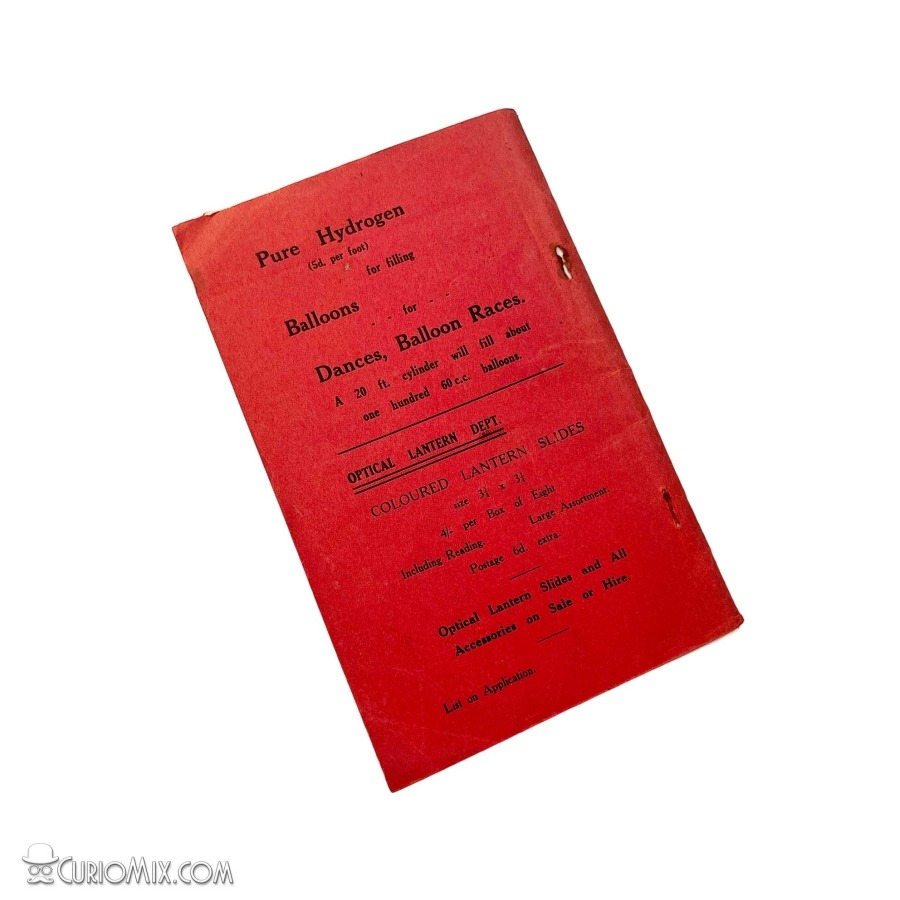 Pure Hydrogen
(5d. per foot)
for filling
Balloons - - for - -
Dances, Balloon Races.
A 20 ft. cylinder will fill about
one hundred 60 c.c. balloons.
OPTICAL LANTERN DEPT.
COLOURED LANTERN SLIDES
size 3¼ x 3¼
4/- per Box of Eight
Including Reading. Large Assortment.
Postage 6d. extra.
Optical Lantern Slides and All
Accessories on Sale or Hire.
List on Application.
CURIOMIX.COM